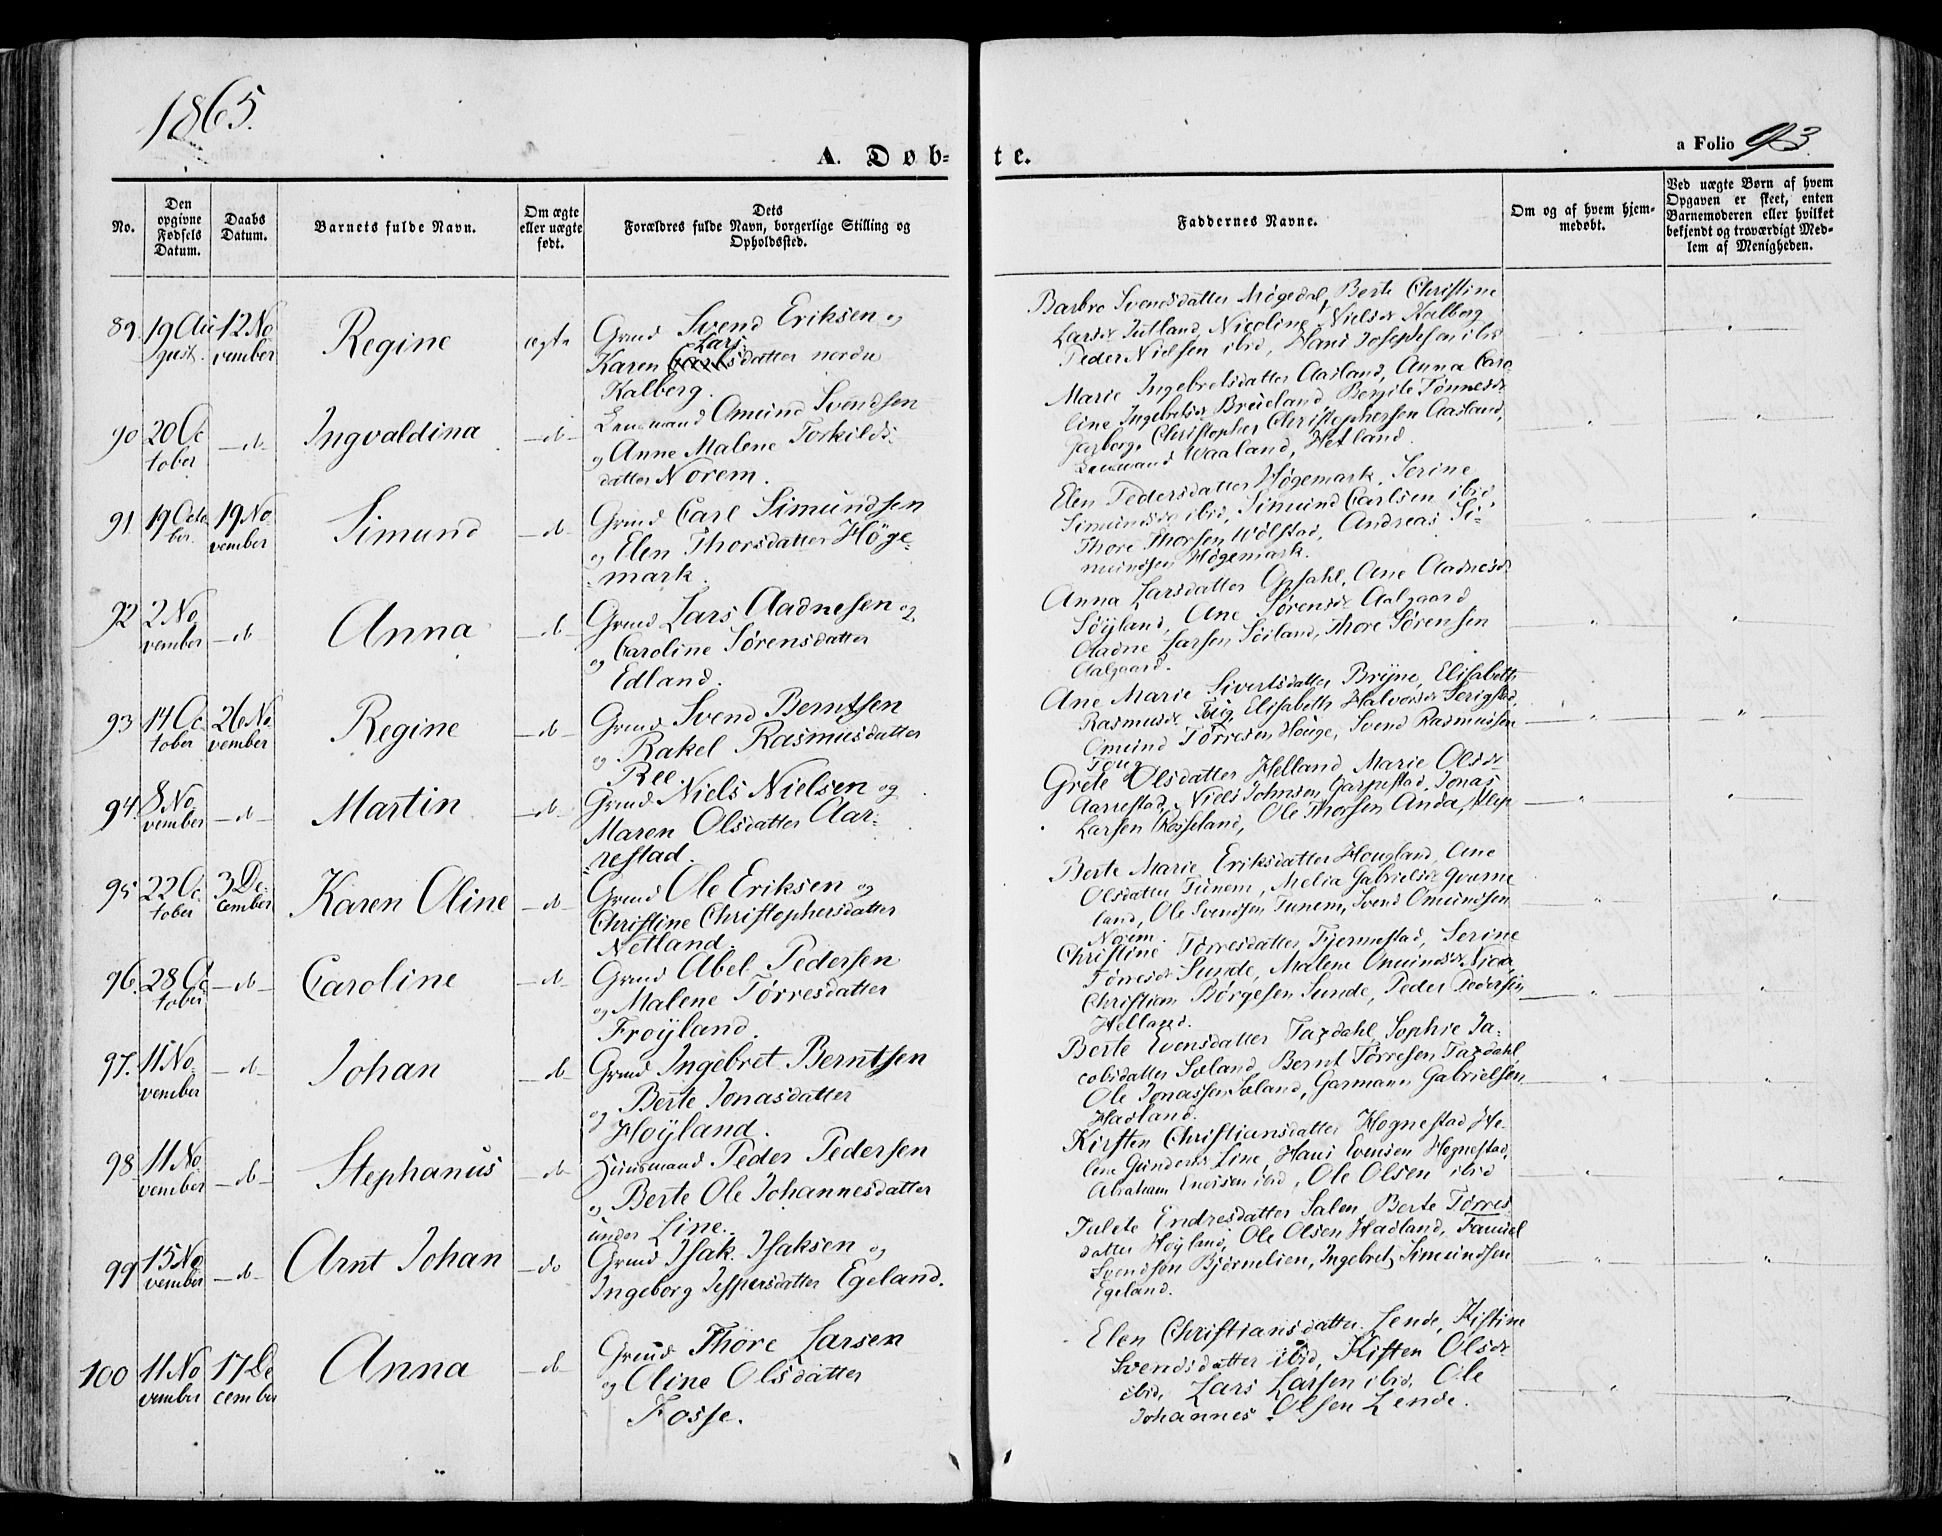 1865.
A. Døb-
te.
a Folio 93.
No.
Den opgivne Fødsels Datum.
Daabs Datum.
Barnets fulde Navn.
Om ægte eller uægte født.
Dets Forældres fulde Navn, borgerlige Stilling og Opholdssted.
Faddernes Navne.
Om og af hvem hjem-
medøbt.
Ved uægte Børn af hvem
Opgaven er skeet, enten
Barnemoderen eller hvilket
bekjendt og troværdigt Med-
lem af Menigheden.
89. 19 Au
gust.
12 No
vember
Regine
ægte
Grmd Svend Eriksen og
Karen Larsdatter nordre
Kalberg.
Barbro Svendsdatter Møgedal, Berte Christine
Larsdr Jutland, Nicoline Nielsdr Kalberg
Peder Nielsen ibid, Hans Josephsen ibid
90 20 Oc
tober
-do-
Ingvaldina
-do-
Lensmand Omund Svendsen
og Anne Malene Torkilds-
datter Norem.
Marie Ingebretsdatter Aasland, Anna Caro
line Ingebretsdr Brueland Bergite Tønnesdr
Christopher Christophersen Aasland,
Lensmand Waaland, Hetland.
91. 19 Octo
ber.
19 No
vember
Simund
-do-
Grmd Carl Simundsen
og Elen Thorsdatter Høge-
mark.
Elen Pedersdatter Høgemark, Serine
Simundsdr ibid, Simund Carlsen ibid
Thore Thorsen Wølstad, Andreas Si-
mundsen Høgemark.
92 2 No
vember
-do
Anna
-do-
Grmd Lars Aadnesen og
og Caroline Sørensdatter
Edland.
Anna Larsdatter Opsahl, Ane Aadnesdr
Søyland, Ane Sørensdr Aalgaard
Aadne Larsen Søiland, Thore Sørensen
Aalgaard.
93 14 Oc
tober
26 No
vember
Regine
-do-
Grmd Svend Berntsen
og Rakel Rasmusdatter
Ree.
Ane Marie Sivertsdatter Bryne, Elisabeth
Rasmusdr Tuig, Elisabeth Halvorsdr Serigstad,
Omund Tørresen Houge, Svend Rasmussen
94. 8 No
vember
-do-
Martin
-do-
Grmd Niels Nielsen og
Maren Olsdatter Aar-
restad.
Grete Olsdatter Helland, Marie Olsdr
Aarrestad, Niels Johnsen Garpestad, Jonas
Larsen Rosseland, Ole Thorsen Anda,
95 22 Oc
tober
3 De-
cember
Karen Oline
-do-
Grmd Ole Eriksen og
Christine Christophersdatter
Netland.
Berte Marie Eriksdatter Hougland, Ane
Olsdatter Tunem, Melia Gabrielsdr Qvarne
land, Ole Svendsen Tunem, Svend Omundsen
Norem.
96. 28 Oc
tober
-do-
Caroline
-do-
Grmd Abel Pedersen
og Malene Tørresdatter
Frøyland.
Christine Tørresdatter Fjermestad, Serine
Tørresdr Sunde, Malene Omundsdr
Christian Børgesen Sunde, Peder Pedersen
Helland.
97. 11 No
vember
-do-
Johan
-do-
Grmd Ingebret Berntsen
og Berte Jonasdatter
Høyland.
Berte Evensdatter Taxdahl, Sophie Ja-
cobsdatter Sæland, Bernt Tørresen Taxdahl,
Ole Jonassen Sæland, Garmann Gabrielsen
Hadland.
98 11 No
vember
-do-
Stephanus
-do-
Huusmand Peder Pedersen
og Berte Ole Johannesdatter
under Line.
Kirsten Christiansdatter Hognestad He-
lene Gundersdr Line, Hans Evensen Hognestad,
Abraham Enersen ibid, Ole Olsen ibid
99 15 No
vember
-do-
Arnt Johan
-do
Grmd Isak Isaksen og
Ingeborg Jespersdatter Egeland.
Julete Endresdatter Salen, Berte Tørres-
datter Høyland, Ole Olsen Hadland,
Svendsen Bjørnelien, Ingebret Simundsen
Egeland.
100 11 No
vember
17 De
cember
Anna
-do-
Grmd Thore Larsen
og Oline Olsdatter
Fosse.
Elen Christiansdatter Lende, Kistine
Svendsdatter ibid, Kisten Olsdr
ibid, Lars Larsen ibid, Ole
Johannes Olsen Lende.